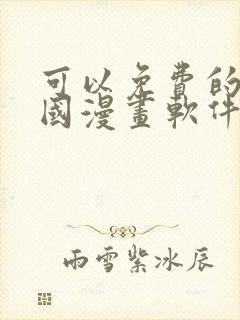 可以免費的
國漫畫軟件
雨雪紫冰辰